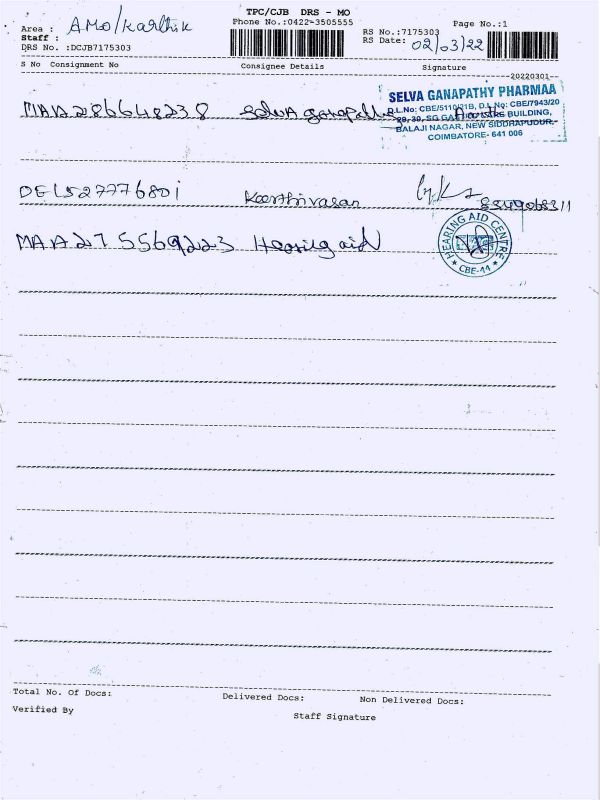 TPC/CJB DRS - MO
Area : AMO/Karthik Phone No.:0422-3505555 Page No.:1
Staff : RS No.:7175303
DRS No. :DCJB7175303 RS Date: 02/03/22
S No Consignment No Consignee Details Signature
20220301
SELVA GANAPATHY PHARMAA
D.L.No: CBE/5110/21B, D.L.No: CBE/7943/20
MAA286648238 Selva ganapathy
29, 30, SG GANAPATHY BUILDING,
BALAJI NAGAR, NEW SIDDHAPUDUR,
COIMBATORE- 641 006
DEL527776801 Keerthivasan
MAA275569223 Hearing aid
HEARING AID CENTRE
CBE-44
Total No. Of Docs: Delivered Docs: Non Delivered Docs:
Verified By Staff Signature